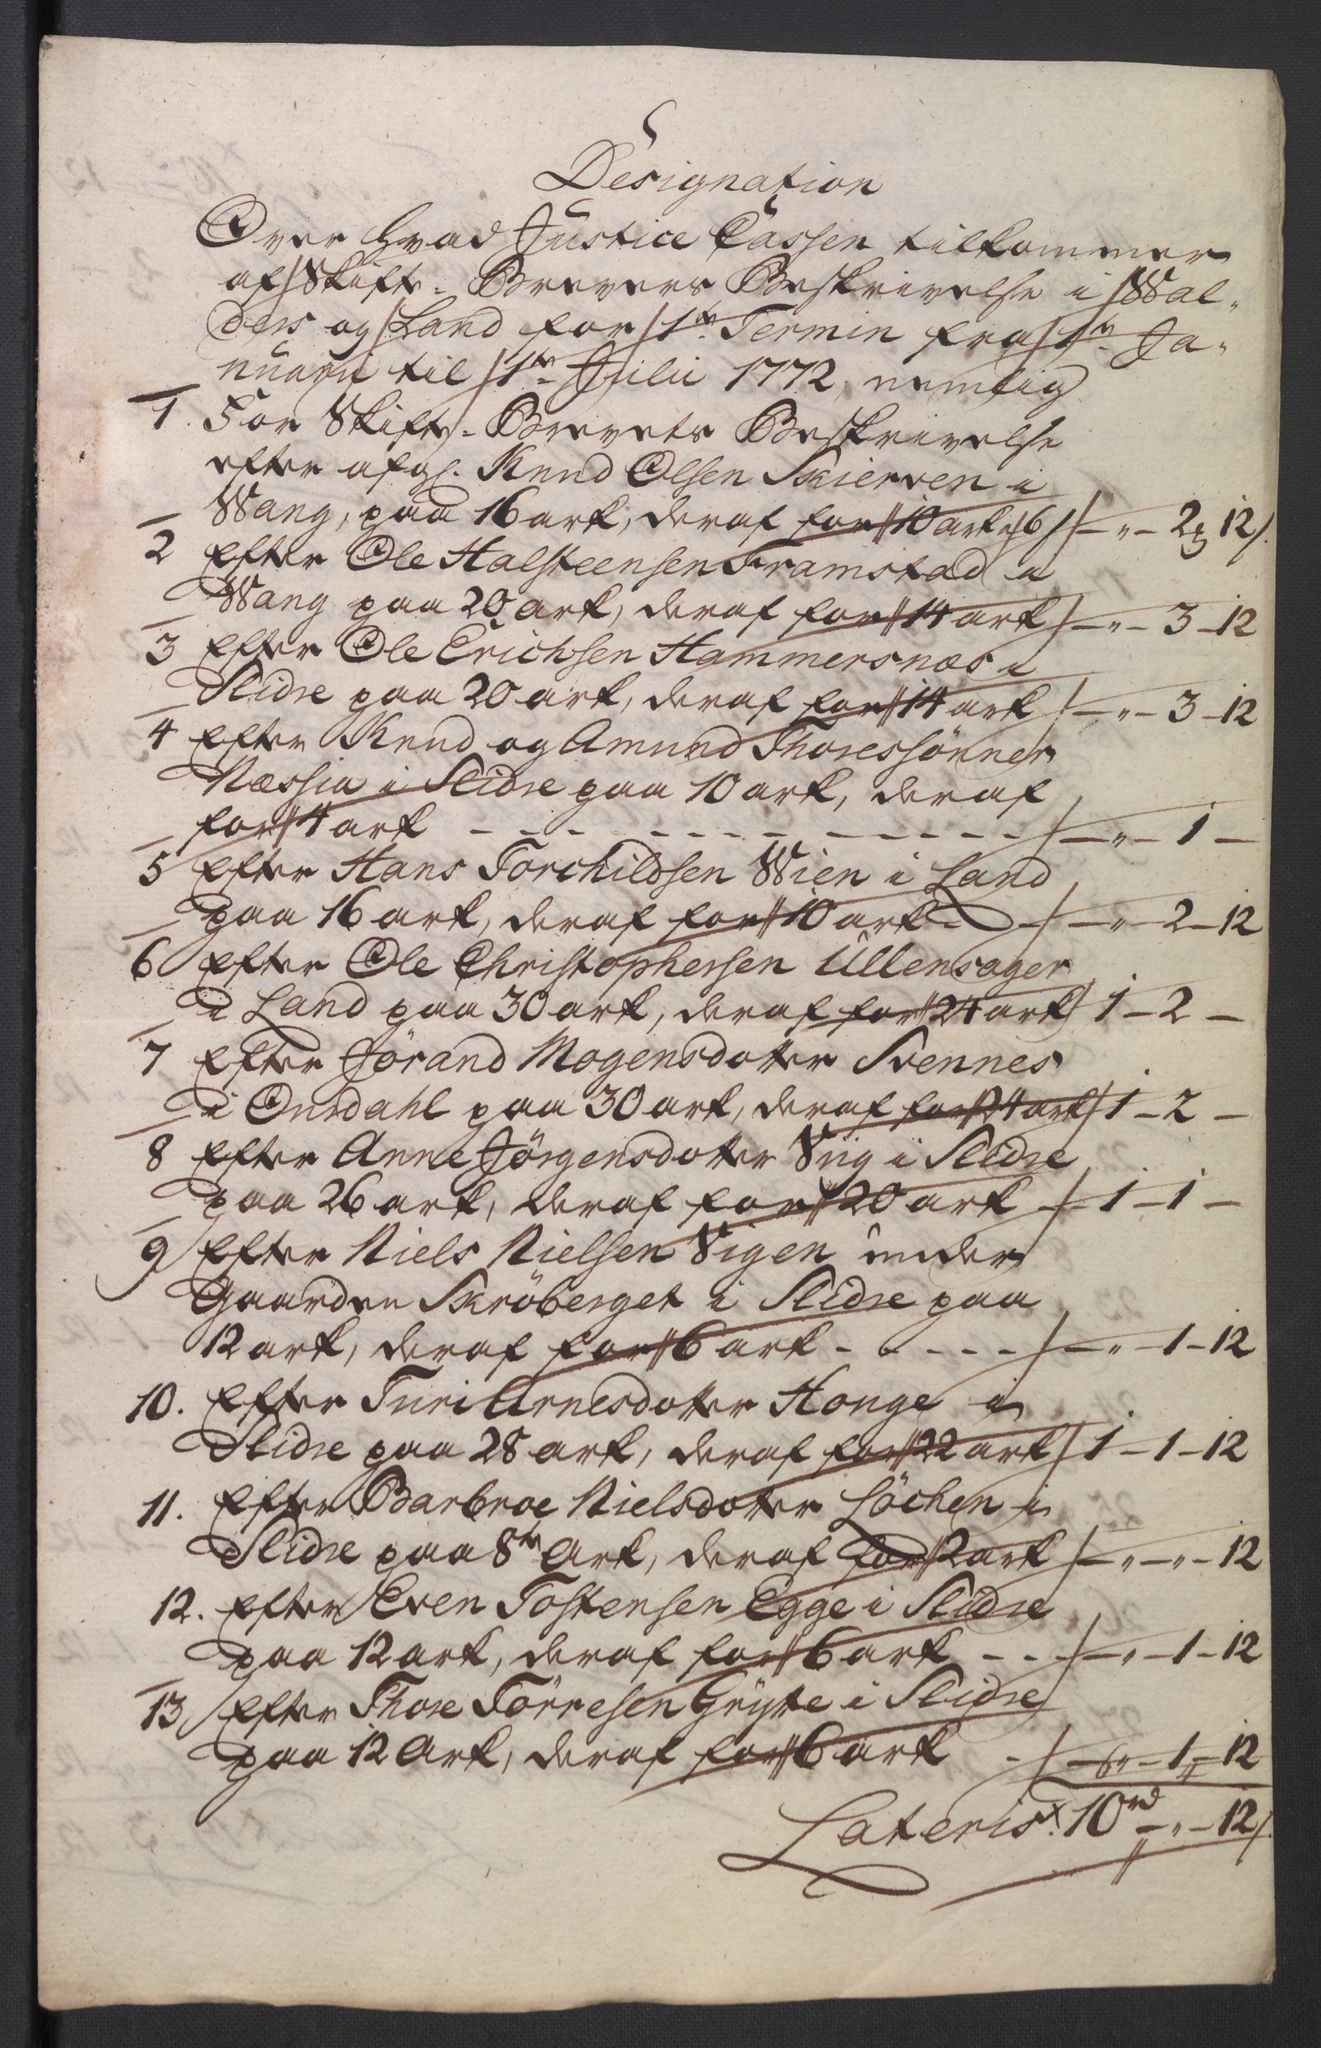 Designation
Over hvad Justice Cassen tilkommer
af Skifte-Brevers Beskrivelse i Wal-
ders og Land for 1ste Termin fra 1ste Ja-
nuarii til 1ste Julii 1772, nemlig
1. For Skifte-Brevets Beskrivelse
efter afg. Knud Olsen Skierven i
Wang, paa 16 ark, deraf for 10 ark à 6 s – „ – 2 12 s.
2 Efter Ole Halsteensen Framstad i
Wang paa 20 ark, deraf for 14 ark – „ – 3 – 12
3 Efter Ole Erichsen Hammersnæs i
Slidre paa 20 ark, deraf for 14 ark – „ – 3 – 12
4 Efter Knud og Amund Thoressönner
Næssia i Slidre paa 10 ark, deraf
for 4 ark – – – – – – – – – – – – „ – 1 –
5 Efter Hans Torchildsen Wien i Land
paa 16 ark, deraf for 10 ark – – „ – 2 – 12
6 Efter Ole Christophersen Ullensager
i Land paa 30 ark, deraf for 24 ark 1 – 2 –
7 Efter Jörand Mogensdotter Svennes
i Ourdahl paa 30 ark, deraf for 24 ark 1 – 2 –
8 Efter Anne Jörgensdotter Viig i Slidre
paa 26 ark, deraf for 20 ark – 1 – 1 –
9 Efter Niels Nielsen Vigen under
Gaarden Skröberget i Slidre paa
12 ark, deraf for 6 ark - - - - - – „ – 1 – 12
10. Efter Turi Arnesdotter Houge i
Slidre paa 28 ark, deraf for 22 ark 1 – 1 – 12
11. Efter Barbroe Nielsdotter Löchen i
Slidre paa 8te Ark, deraf for 2 ark – „ – „ – 12
12. Efter Even Tostensen Egge i Slidre
paa 12 ark, deraf for 6 ark - - - – „ – 1 – 12
13 Efter Thore Törresen Gryte i Slidre
paa 12 Ark, deraf for 6 ark - – „ – 1 – 12
Lateris 10 rd – „ – 12 s.